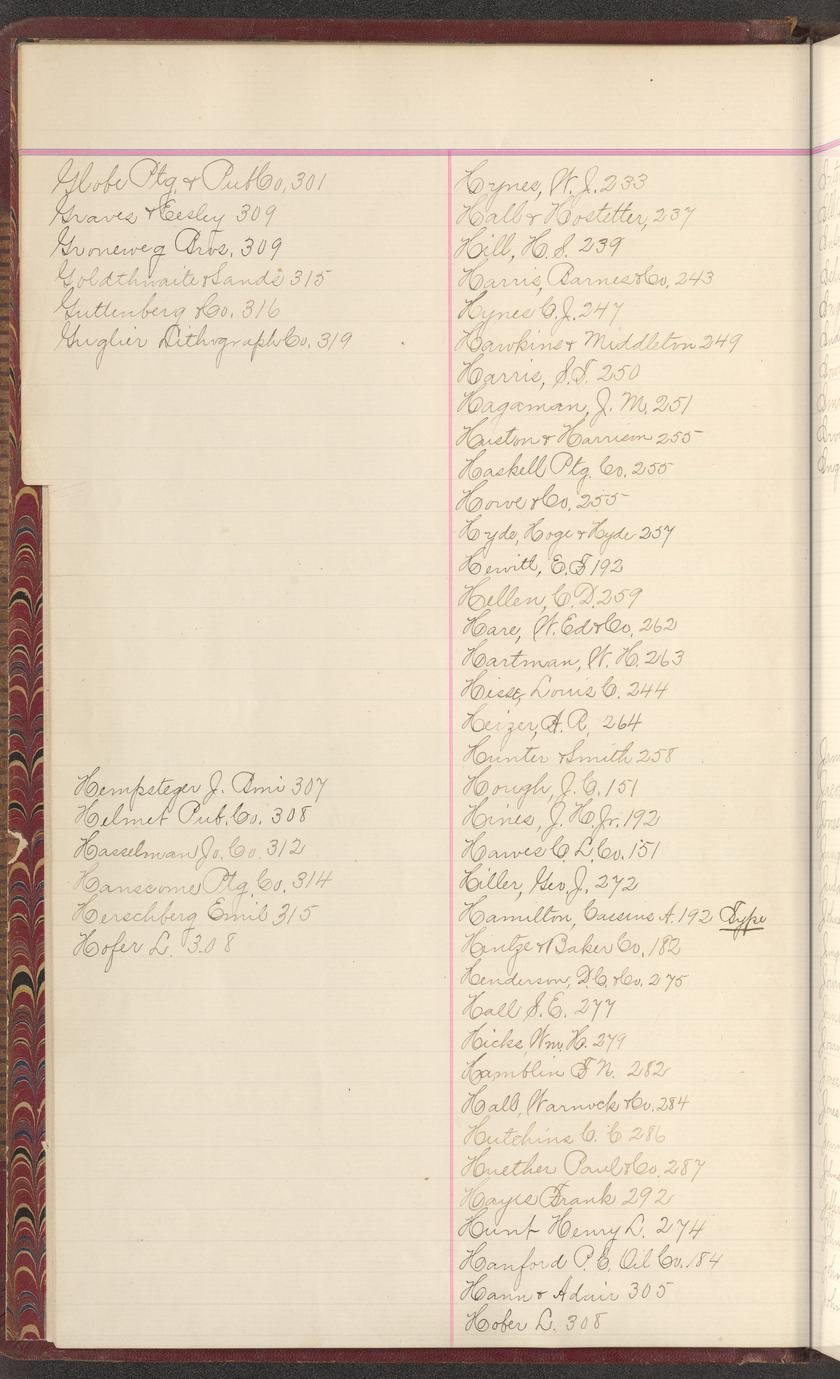 Globe Ptg. & Pub Co, 301
Graves & Eesley 309
Groneweg Bros. 309
Goldthwaite & Sands 315
Guttenberg & Co. 316
Guglier Lithograph Co. 319
Hempsteger J. Ami 307
Helmet Pub. Co. 308
Hasselman Jo. Co. 312
Hanscome Ptg. Co. 314
Herschberg Emil 315
Hofer L. 308
Hynes, W. J. 233
Hall & Hostetter, 237
Hill, H. S. 239
Harris, Barnes & Co, 243
Hynes C. J. 247
Hawkins & Middleton 249
Harris, S. T. 250
Hagaman, J. M. 251
Huston & Harrison 255
Haskell Ptg. Co. 255
Howe & Co. 255
Hyde, Hoge & Hyde 257
Hewitt, E. T 192
Hellen, C. D. 259
Hare, W. Ed & Co, 262
Hartman, W. H. 263
Hisse, Louis C. 244
Heizer, A. R, 264
Hunter & Smith 258
Hough, J. C. 151
Hines, J. H. Jr. 192
Hawes C L Co. 151
Hiller, Geo, J. 272
Hamilton, Cassius A. 192 Type
Hintze & Baker Co, 182
Henderson, D. C. & Co. 275
Hall S. E. 277
Hicks, Wm, H. 279
Hamblin T N. 282
Hall, Warnock & Co. 284
Hutchins C. C 286
Huether Paul & Co. 287
Hayes Frank 292
Hunt Henry L. 274
Hanford P. C. Oil Co. 184
Hann & Adair 305
Hober L. 308